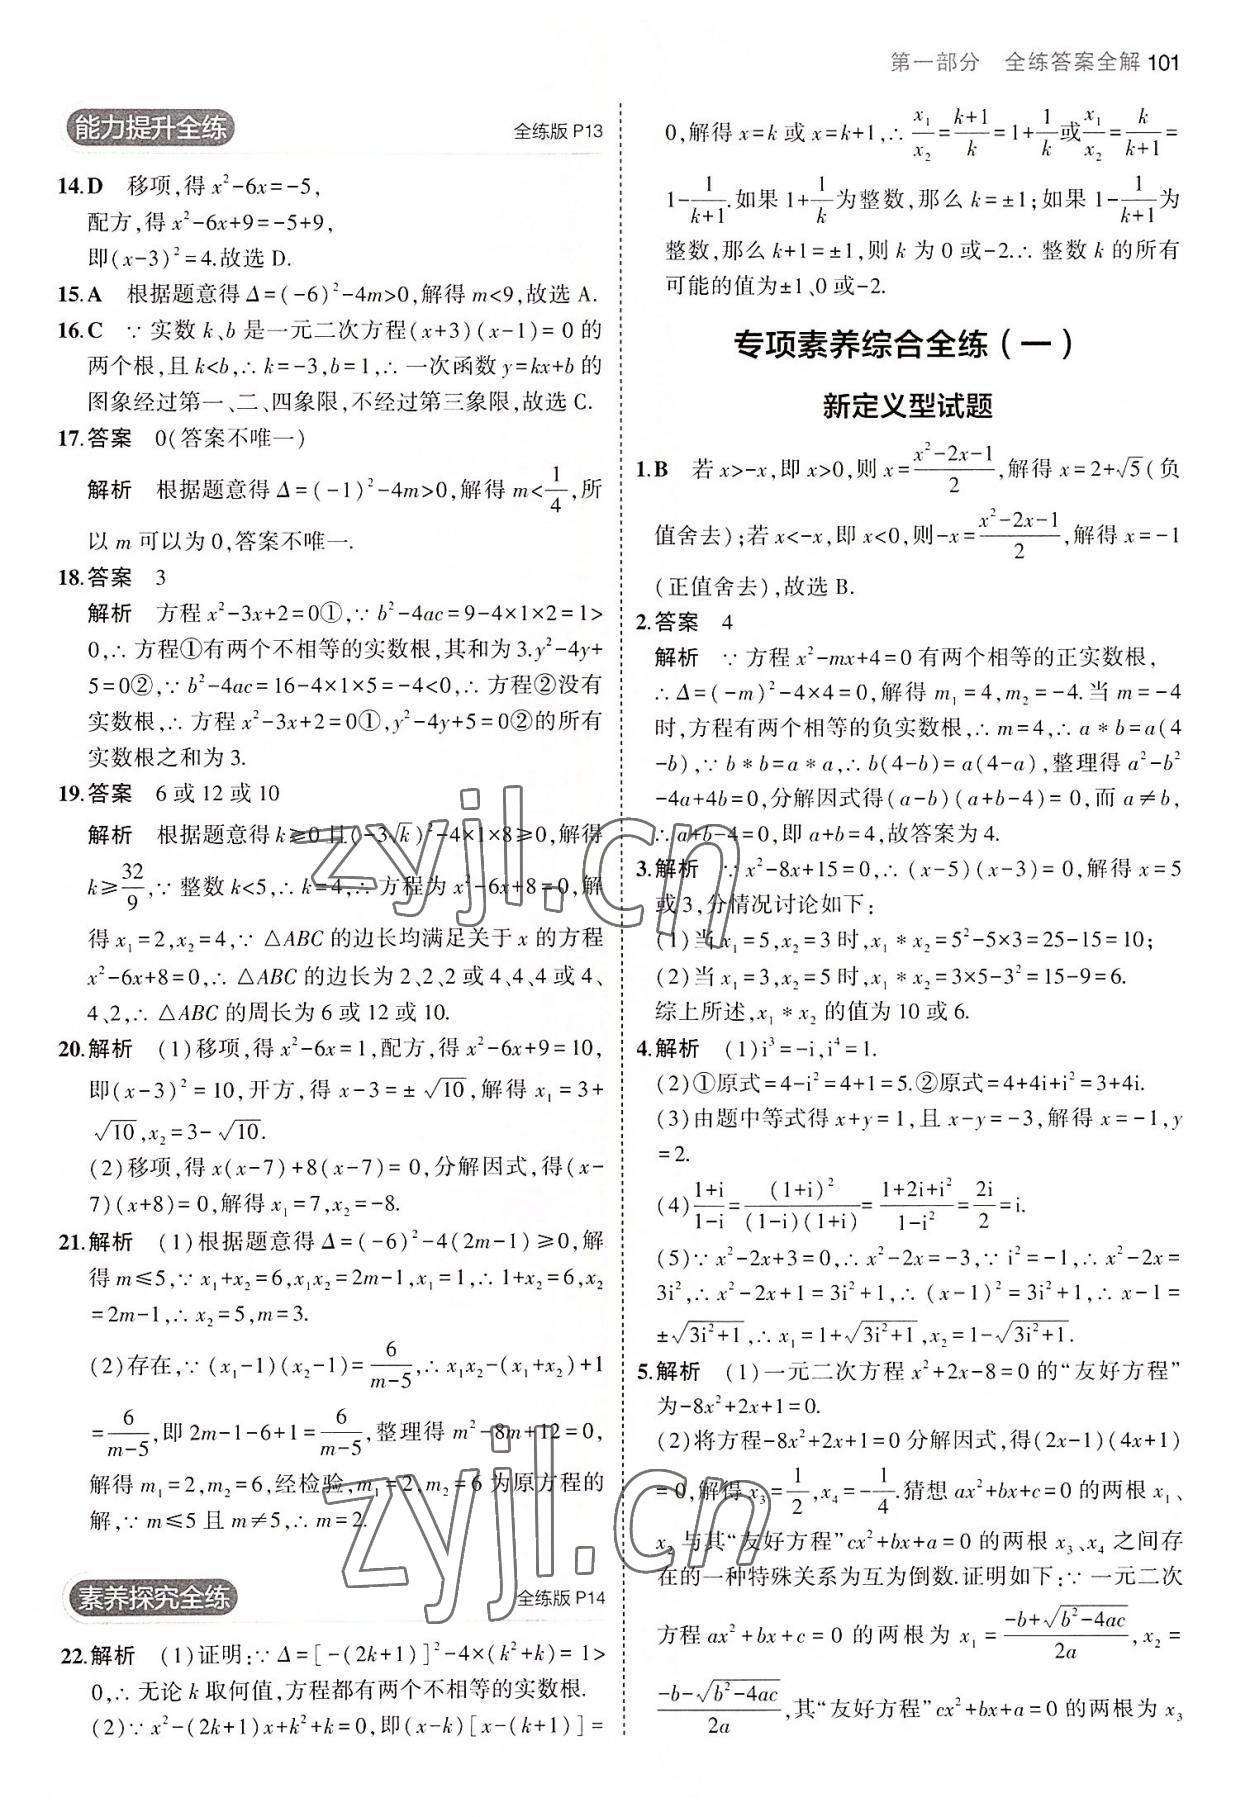 第一部分 全练答案全解 101
能力提升全练 全练版 P13
14.D 移项,得 x²-6x=-5,
配方,得 x²-6x+9=-5+9,
即(x-3)²=4.故选 D.
15.A 根据题意得 Δ=(-6)²-4m>0,解得 m<9,故选 A.
16.C ∵ 实数 k、b 是一元二次方程(x+3)(x-1)=0 的
两个根,且 k<b,∴ k=-3,b=1,∴ 一次函数 y=kx+b 的
图象经过第一、二、四象限,不经过第三象限,故选 C.
17.答案 0(答案不唯一)
解析 根据题意得 Δ=(-1)²-4m>0,解得 m<1/4,所
以 m 可以为 0,答案不唯一.
18.答案 3
解析 方程 x²-3x+2=0①,∵ b²-4ac=9-4×1×2=1>
0,∴ 方程①有两个不相等的实数根,其和为 3.y²-4y+
5=0②,∵ b²-4ac=16-4×1×5=-4<0,∴ 方程②没有
实数根,∴ 方程 x²-3x+2=0①,y²-4y+5=0②的所有
实数根之和为 3.
19.答案 6 或 12 或 10
解析 根据题意得 k≥0 且(-3√k)²-4×1×8≥0,解得
k≥32/9,∵ 整数 k<5,∴ k=4,∴ 方程为 x²-6x+8=0,解
得 x₁=2,x₂=4,∵ △ABC 的边长均满足关于 x 的方程
x²-6x+8=0,∴ △ABC 的边长为 2、2、2 或 4、4、4 或 4、
4、2,∴ △ABC 的周长为 6 或 12 或 10.
20.解析 (1)移项,得 x²-6x=1,配方,得 x²-6x+9=10,
即(x-3)²=10,开方,得 x-3=±√10,解得 x₁=3+
√10,x₂=3-√10.
(2)移项,得 x(x-7)+8(x-7)=0,分解因式,得(x-
7)(x+8)=0,解得 x₁=7,x₂=-8.
21.解析 (1)根据题意得 Δ=(-6)²-4(2m-1)≥0,解
得 m≤5,∵ x₁+x₂=6,x₁x₂=2m-1,x₁=1,∴ 1+x₂=6,x₂
=2m-1,∴ x₂=5,m=3.
(2)存在,∵ (x₁-1)(x₂-1)=6/(m-5),∴ x₁x₂-(x₁+x₂)+1
=6/(m-5),即 2m-1-6+1=6/(m-5),整理得 m²-8m+12=0,
解得 m₁=2,m₂=6,经检验,m₁=2,m₂=6 为原方程的
解,∵ m≤5 且 m≠5,∴ m=2.
素养探究全练 全练版 P14
22.解析 (1)证明:∵ Δ=[-(2k+1)]²-4×(k²+k)=1>
0,∴ 无论 k 取何值,方程都有两个不相等的实数根.
(2)∵ x²-(2k+1)x+k²+k=0,即(x-k)[x-(k+1)]=
0,解得 x=k 或 x=k+1,∴ x₁/x₂=(k+1)/k=1+1/k或x₁/x₂=k/(k+1)=
1-1/(k+1).如果 1+1/k为整数,那么 k=±1;如果 1-1/(k+1)为
整数,那么 k+1=±1,则 k 为 0 或-2.∴ 整数 k 的所有
可能的值为±1、0 或-2.
专项素养综合全练(一)
新定义型试题
1.B 若 x>-x,即 x>0,则 x=(x²-2x-1)/2,解得 x=2+√5(负
值舍去);若 x<-x,即 x<0,则-x=(x²-2x-1)/2,解得 x=-1
(正值舍去),故选 B.
2.答案 4
解析 ∵ 方程 x²-mx+4=0 有两个相等的正实数根,
∴ Δ=(-m)²-4×4=0,解得 m₁=4,m₂=-4.当 m=-4
时,方程有两个相等的负实数根,∴ m=4,∴ a*b=a(4
-b),∵ b*b=a*a,∴ b(4-b)=a(4-a),整理得 a²-b²
-4a+4b=0,分解因式得(a-b)(a+b-4)=0,而 a≠b,
∴a+b-4=0,即 a+b=4,故答案为 4.
3.解析 ∵ x²-8x+15=0,∴ (x-5)(x-3)=0,解得 x=5
或 3,分情况讨论如下:
(1)当 x₁=5,x₂=3 时,x₁*x₂=5²-5×3=25-15=10;
(2)当 x₁=3,x₂=5 时,x₁*x₂=3×5-3²=15-9=6.
综上所述,x₁*x₂ 的值为 10 或 6.
4.解析 (1)i³=-i,i⁴=1.
(2)①原式=4-i²=4+1=5.②原式=4+4i+i²=3+4i.
(3)由题中等式得 x+y=1,且 x-y=-3,解得 x=-1,y
=2.
(4)(1+i)/(1-i)=(1+i)²/((1-i)(1+i))=(1+2i+i²)/(1-i²)=2i/2=i.
(5)∵ x²-2x+3=0,∴ x²-2x=-3,∵ i²=-1,∴ x²-2x=
3i²,∴ x²-2x+1=3i²+1,∴ (x-1)²=3i²+1,∴ x-1=
±√(3i²+1),∴ x₁=1+√(3i²+1),x₂=1-√(3i²+1).
5.解析 (1)一元二次方程 x²+2x-8=0 的“友好方程”
为-8x²+2x+1=0.
(2)将方程-8x²+2x+1=0 分解因式,得(2x-1)(4x+1)
=0,解得 x₃=1/2,x₄=-1/4.猜想 ax²+bx+c=0 的两根 x₁、
x₂ 与其“友好方程”cx²+bx+a=0 的两根 x₃、x₄ 之间存
在的一种特殊关系为互为倒数.证明如下:∵ 一元二次
方程 ax²+bx+c=0 的两根为 x₁=(-b+√(b²-4ac))/2a,x₂=
(-b-√(b²-4ac))/2a,其“友好方程”cx²+bx+a=0 的两根为 x₃
zyjl.cn
zyjl.cn